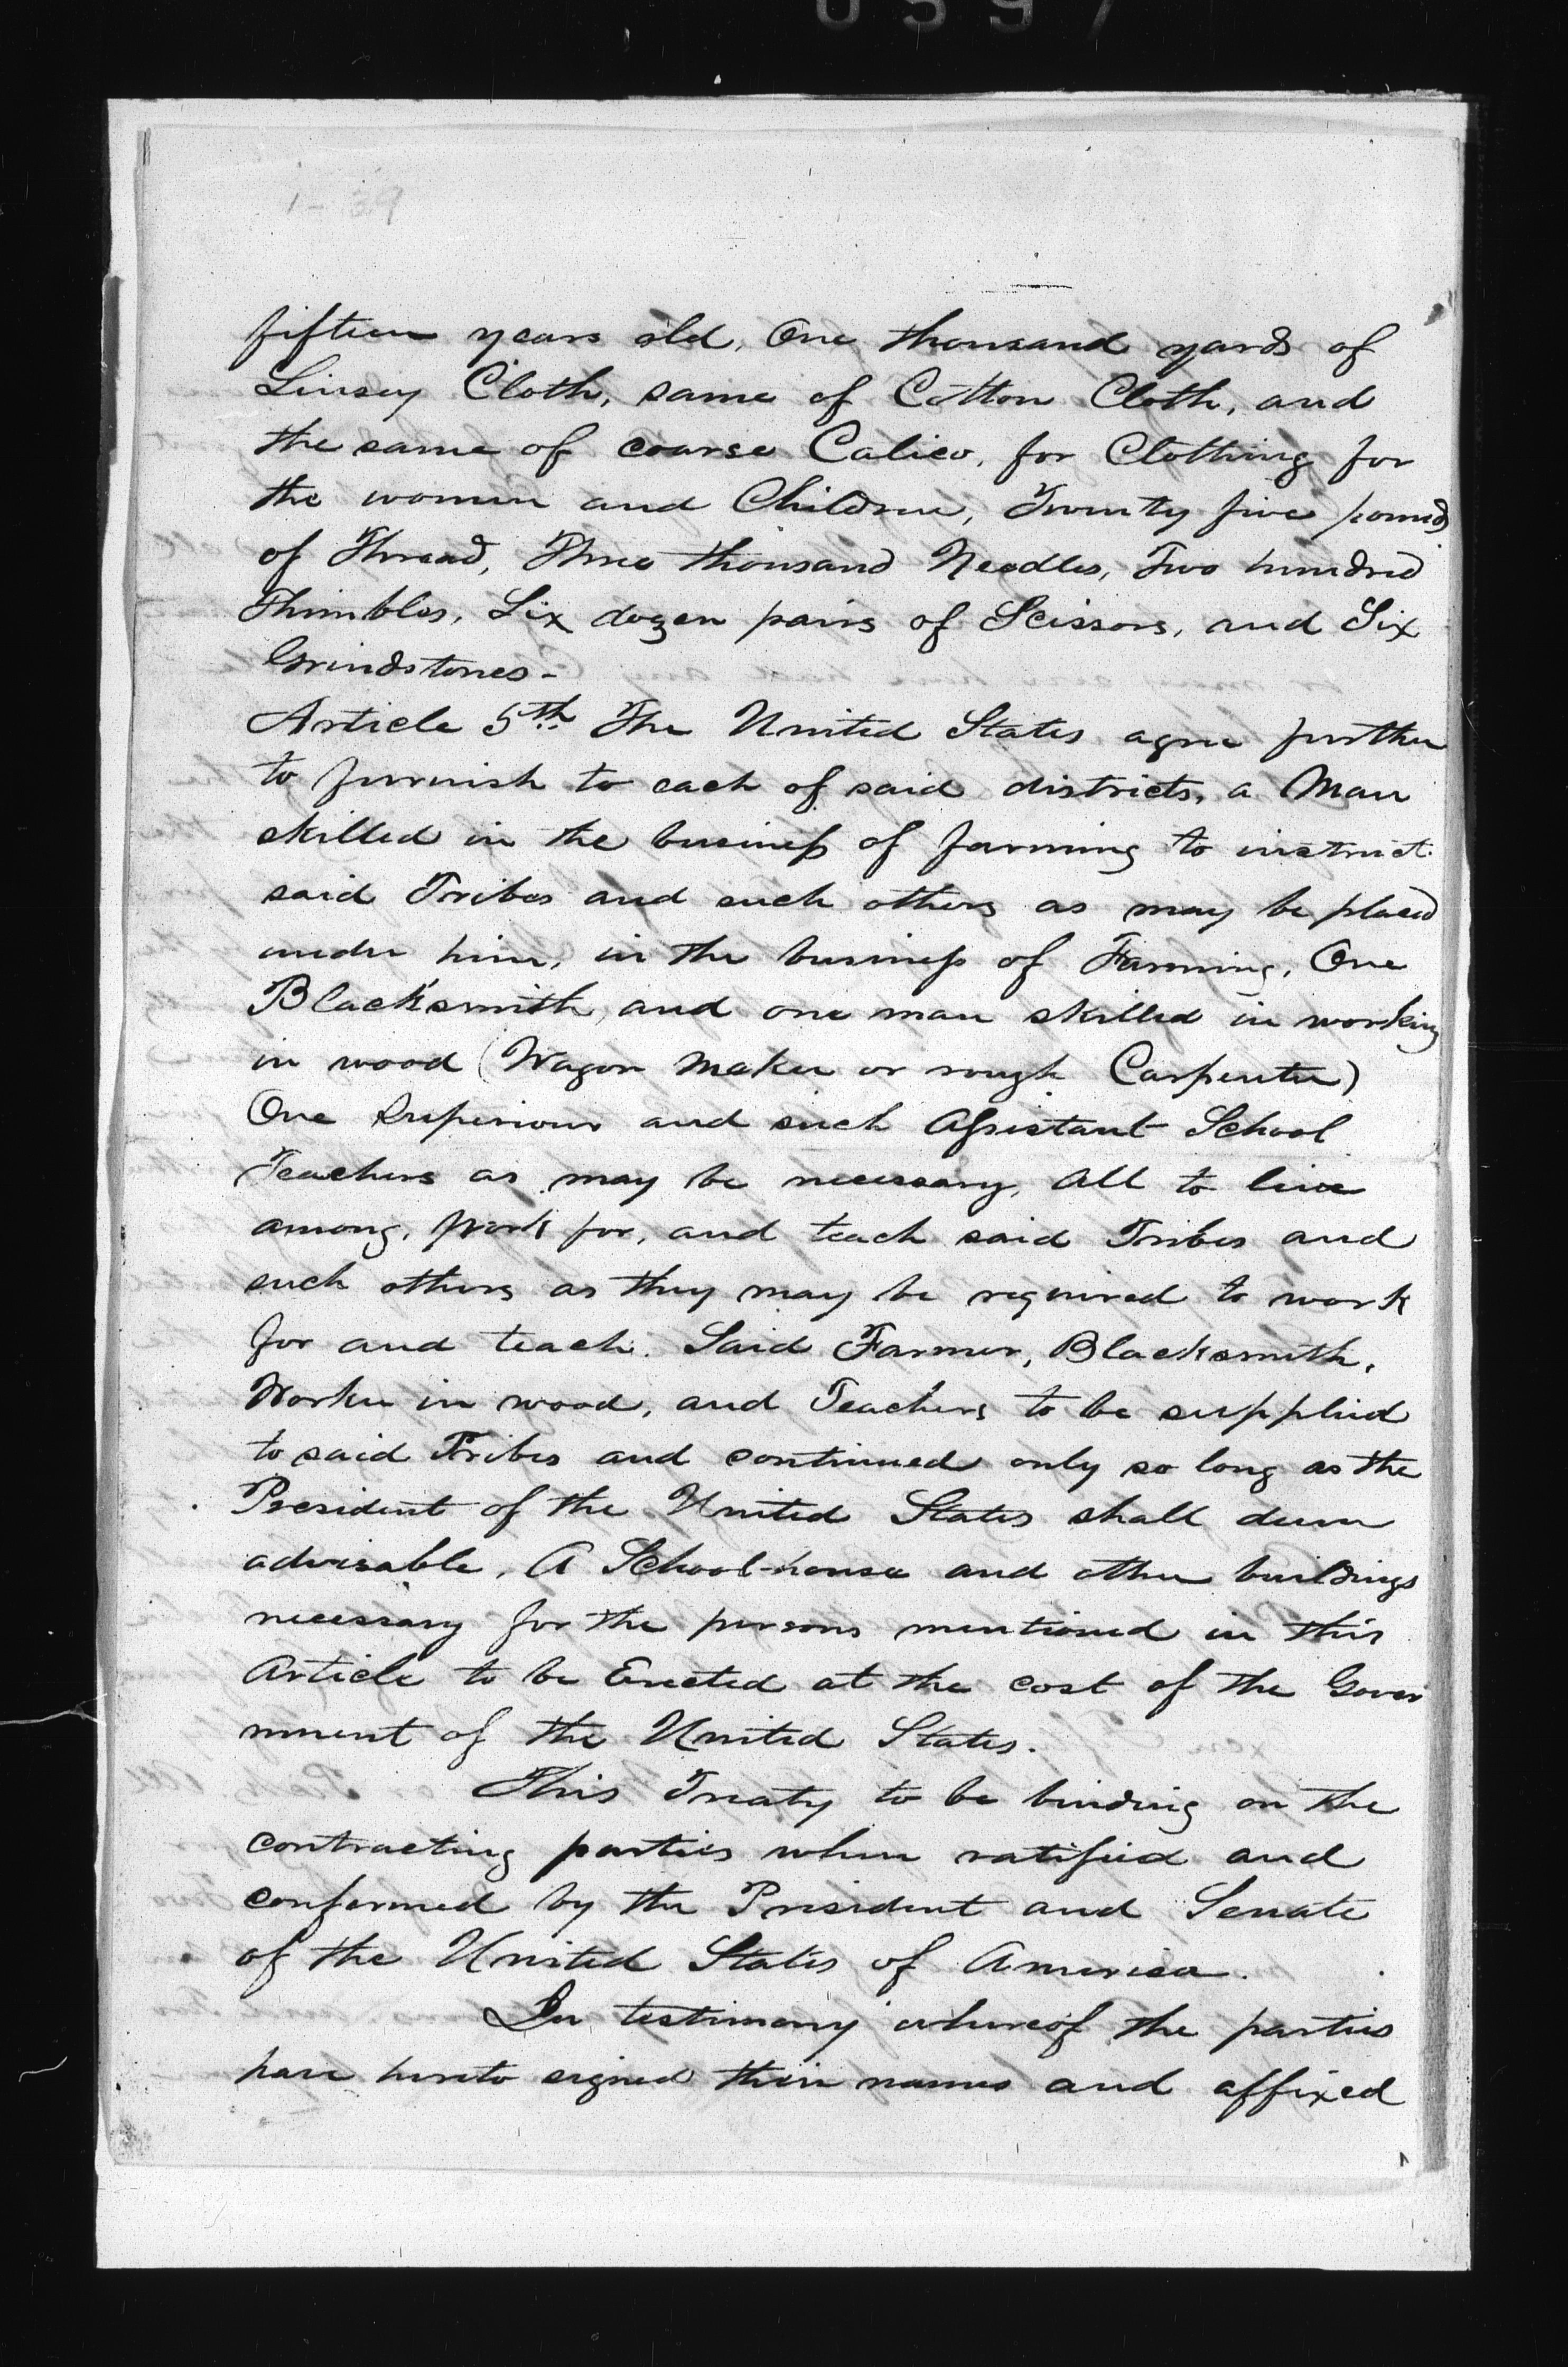 0597
1-39
fifteen years old, One thousand yards of
Linsey Cloth, same of Cotton Cloth, and
the same of coarse Calico, for Clothing for
the women and Children, Twenty five pounds
of Thread, Three thousand Needles, Two hundred
Thimbles, Six dozen pairs of Scissors, and Six
Grindstones-
Article 5th. The United States agree further
to furnish to each of said districts, a Man
skilled in the business of farming to instruct
said Tribes and such others as may be placed
under him, in the business of Farming, One
Blacksmith, and one man skilled in working
in wood (Wagon maker or rough Carpenter)
One Superiour and such Assistant School
Teachers as may be necessary, All to live
among, work for, and teach said Tribes and
such others as they may be required to work
for and teach. Said Farmer, Blacksmith,
Worker in wood, and Teachers to be supplied
to said Tribes and continued only so long as the
President of the United States shall deem
advisable, A School-house and other buildings
necessary for the persons mentioned in this
Article to be Erected at the cost of the Gover
nment of the United States.
This Treaty to be binding on the
contracting parties when ratified and
confermed by the President and Senate
of the United States of America.
In testimony whereof the parties
have hereto signed their names and affixed